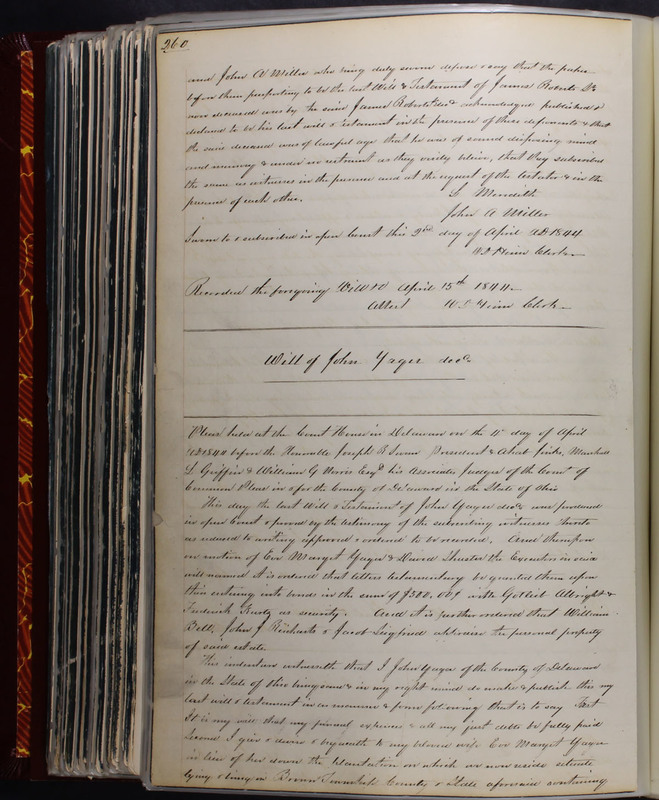 260
and John A Miller who being duly sworn depose & say that the paper
before them purporting to be the last Will & Testament of James Roberts Sr
now deceased was by the said James Roberts decd acknowledged published &
declared to be his last will & testament in the presence of these deponents & that
the said deceased was of lawful age that he was of sound disposing mind
and memory & under no restraint as they verily believe, that they subscribed
the same as witnesses in the presence and at the request of the testator & in the
presence of each other.
S. Meredith
John A Miller
Sworn to & subscribed in open Court this 2nd day of April AD 1844
Clerk
Recorded the foregoing Will &c April 15th 1844
Attest Clerk
Will of John Yager decd
Pleas held at the Court House in Delaware on the day of April
AD 1844 before the Honorable Joseph R Swan President & Ahab Jinks, Marshall
L Griffin & William G Norris Esqs his Associate Judges of the Court of
Common Pleas in & for the County of Delaware in the State of Ohio
This day the last Will & Testament of John Yager decd was produced
in open Court & proved by the testimony of the subscribing witnesses thereto
as reduced to writing approved & ordered to be recorded. And thereupon
on motion of Eve Margret Yager & David Shuster the Executors in said
will named it is ordered that letters testamentary be granted them upon
their entering into bonds in the sum of $500.00 with Gotleib Albright &
Frederick Kurtz as security. And it is further ordered that William
Bell, John J Rinharts & Jacob Siegfried appraise the personal property
of said estate.
This indenture witnesseth that I John Yager of the County of Delaware
in the State of Ohio being sane & in my right mind do make & publish this my
last will & testament in manner & form following that is to say First
It is my will that my funeral expences & all my just debts be fully paid
Second I give & devise & bequeath to my beloved wife Eve Margret Yager
in lieu of her dower the plantation on which we now reside situate
lying & being in Brown Township County & State aforesaid containing